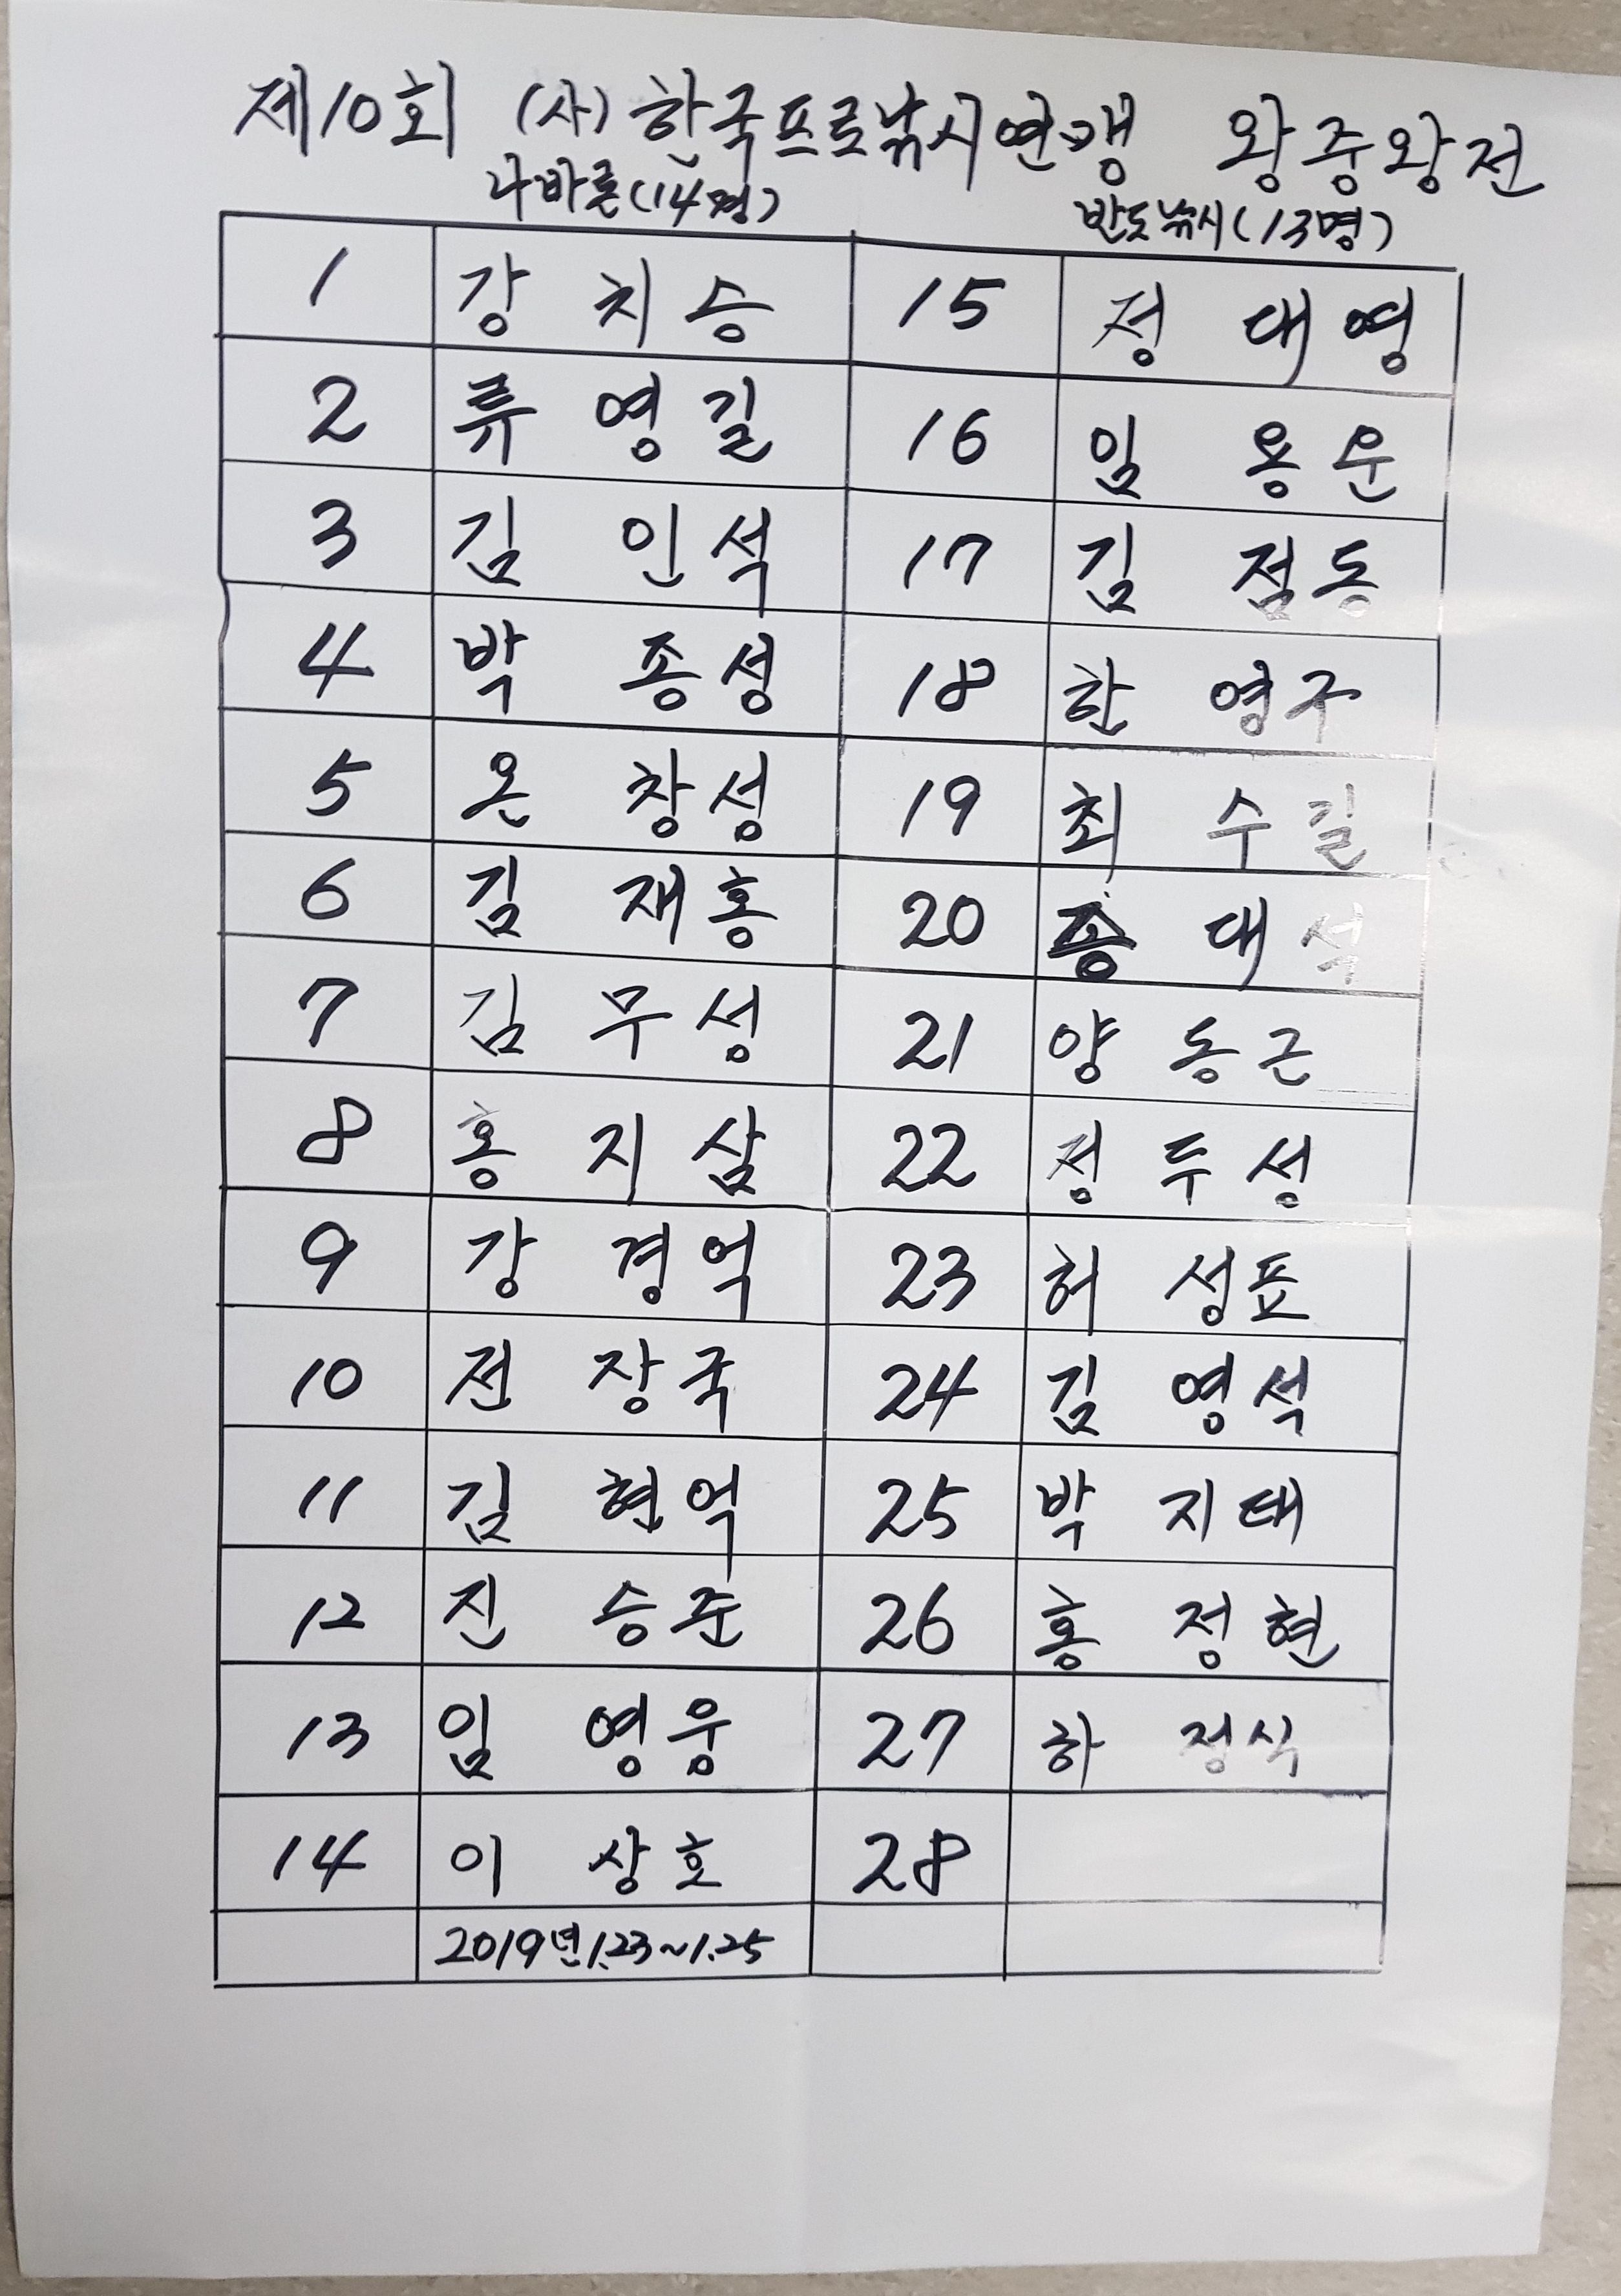 제10회 (사) 한국프로낚시연맹 왕중왕전
나바론(14명) 반도낚시(13명)
1 강치승 15 정대영
2 류영길 16 임용운
3 김인석 17 김점동
4 박종성 18 한영구
5 온창성 19 최수길
6 김재홍 20 대석
7 김무성 21 양동근
8 홍지삼 22 정두성
9 강경억 23 허성표
10 전장국 24 김영석
11 김현억 25 박지태
12 진승준 26 홍정현
13 임영웅 27 하정식
14 이상호 28
2019년 1.23~1.25